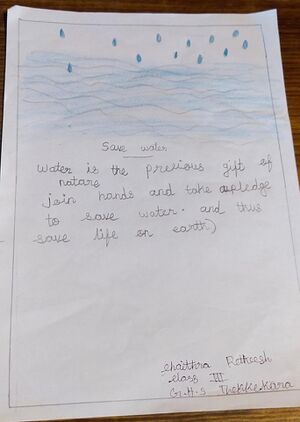 Save water
Water is the previous gift of
nature
join hands and take a pledge
to save water. and thus
save life on earth)
Chaithra Ratheesh
class III
G.H.S Thekkekara